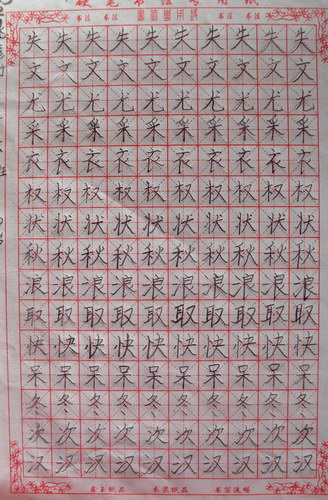 硬笔书法专用纸
书法 书法 书法 书法
失失失失失失失失失失
文文文文文文文文文文
尤尤尤尤尤尤尤尤尤尤
采采采采采采采采采采
衣衣衣衣衣衣衣衣衣衣
权权权权权权权权权权
状状状状状状状状状状
秋秋秋秋秋秋秋秋秋秋
浪浪浪浪浪浪浪浪浪浪
取取取取取取取取取取
快快快快快快快快快快
呆呆呆呆呆呆呆呆呆呆
冬冬冬冬冬冬冬冬冬冬
次次次次次次次次次次
汉汉汉汉汉汉汉汉汉汉